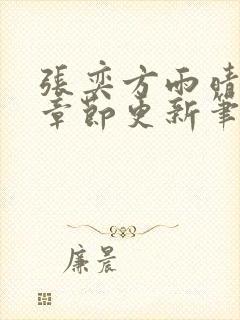 張奕方雨晴
章節更新筆
廉晨